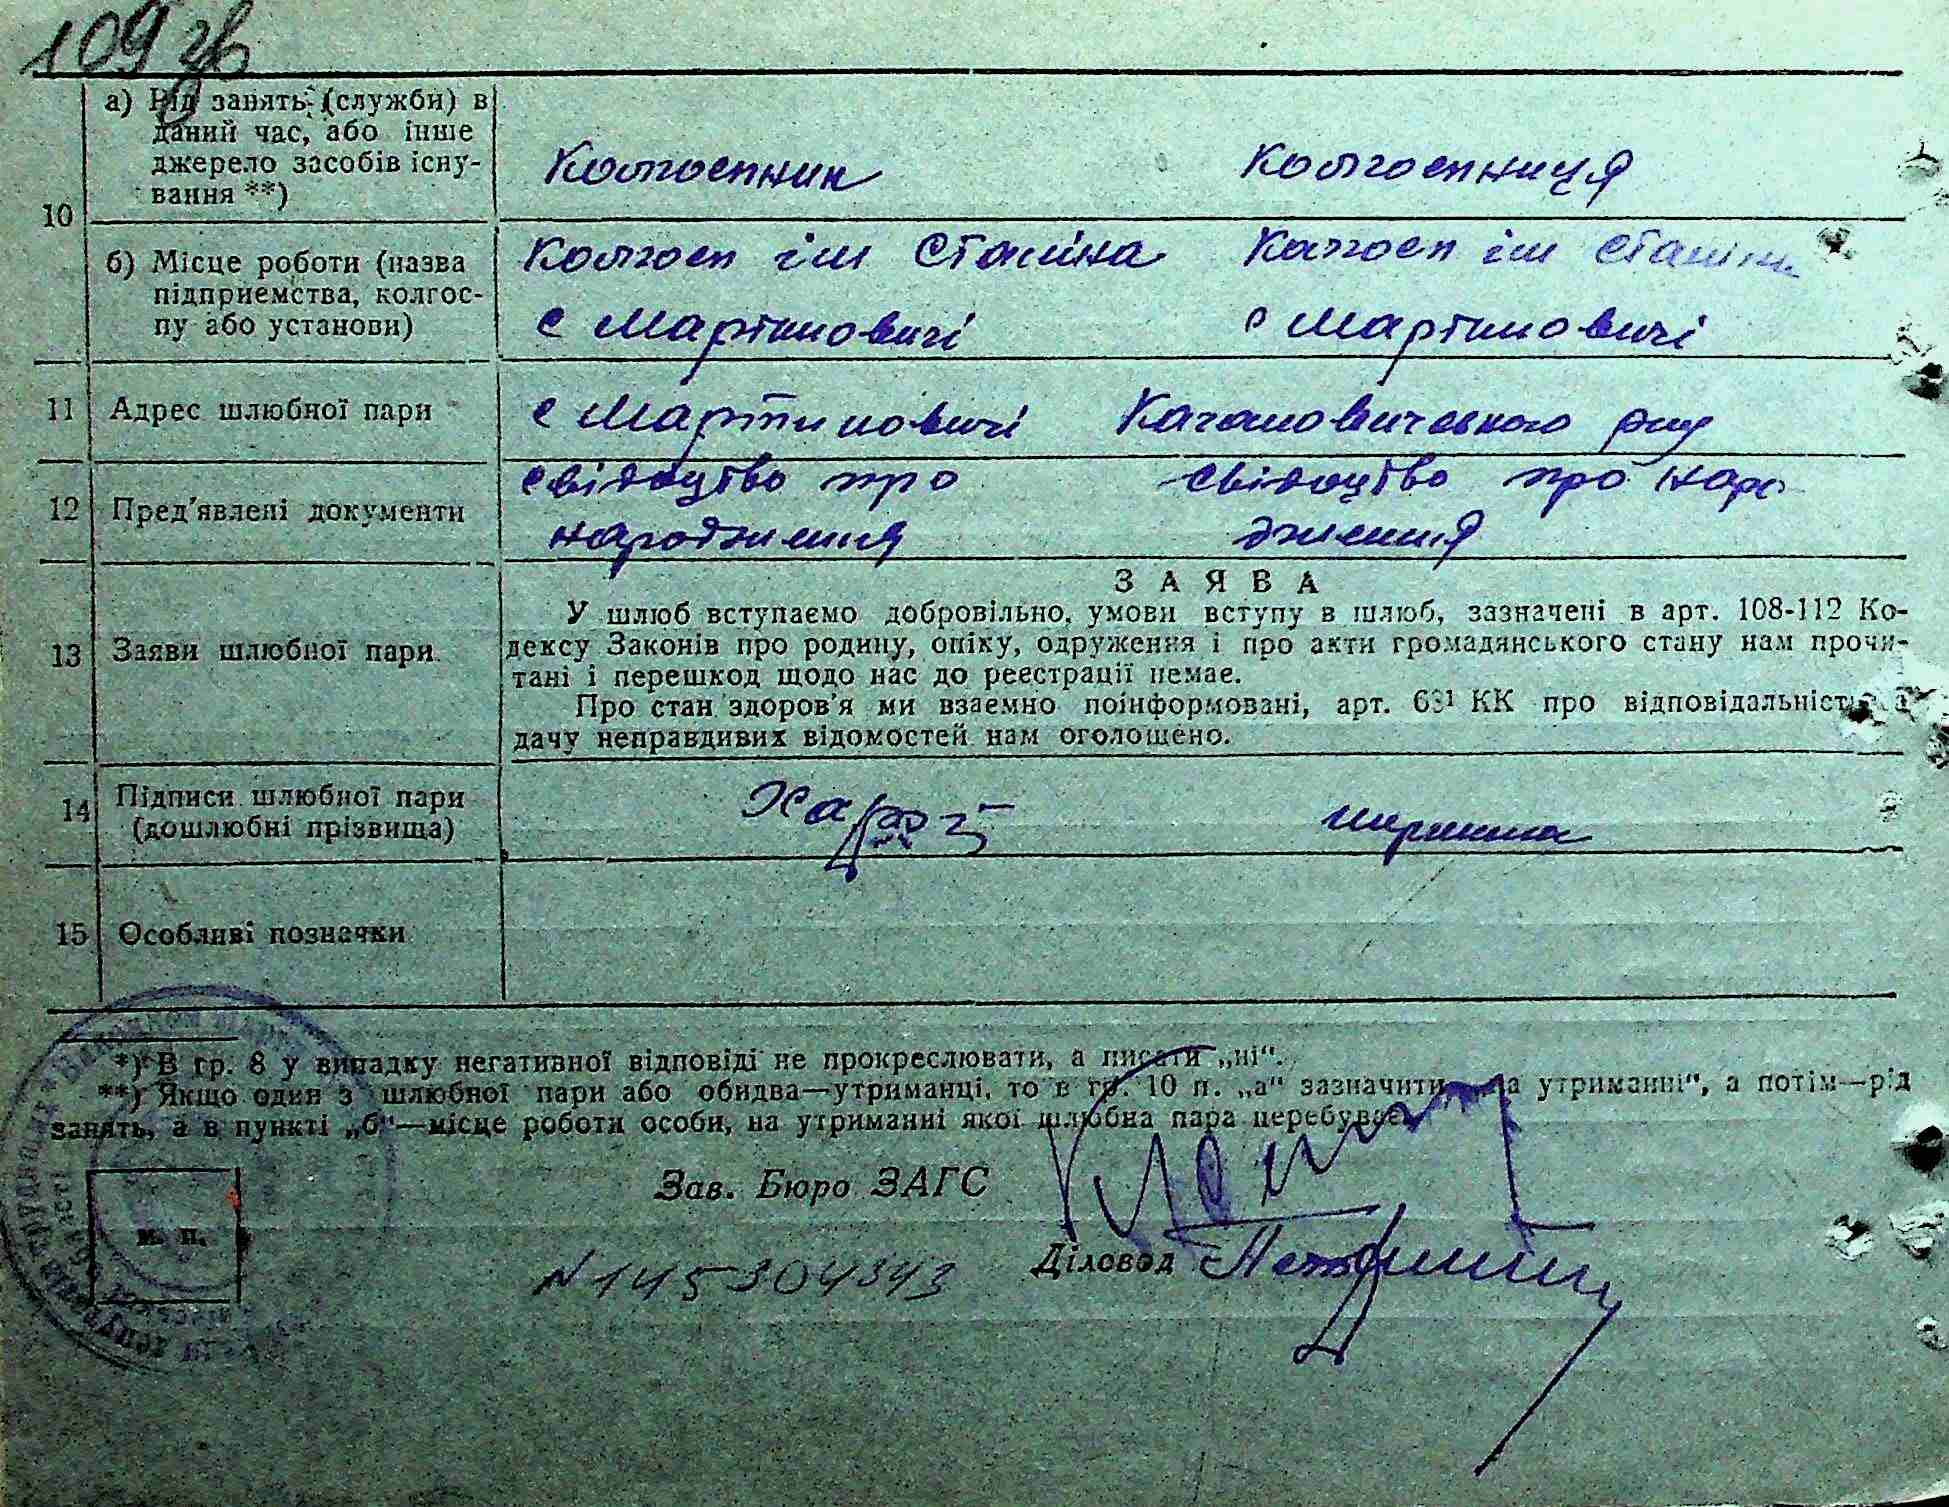 109 зв
10
а) Рід занять (служби) в
даний час, або інше
джерело засобів існу-
вання **)
Колгоспник
Колгоспниця
б) Місце роботи (назва
підприємства, колгос-
пу або установи)
Колгосп ім Сталіна
с Мартиновичі
Колгосп ім Сталіна
с Мартиновичі
11 Адрес шлюбної пари
с Мартиновичі Кагановичського р-ну
12 Пред'явлені документи
свідоцтво про
народження
свідоцтво про наро
дження
13 Заяви шлюбної пари
ЗАЯВА
У шлюб вступаємо добровільно, умови вступу в шлюб, зазначені в арт. 108-112 Ко-
дексу Законів про родину, опіку, одруження і про акти громадянського стану нам прочи-
тані і перешкод щодо нас до реестрації немає.
Про стан здоров'я ми взаємно поінформовані, арт. 63¹ КК про відповідальність
дачу неправдивих відомостей нам оголошено.
14 Підписи шлюбної пари
(дошлюбні прізвища)
15 Особливі позначки
*) В гр. 8 у випадку негативної відповіді не прокреслювати, а писати „ні“.
**) Якщо один з шлюбної пари або обидва—утриманці, то в гр. 10 п. „а“ зазначити „на утриманні“, а потім—рід
занять, а в пункті „б“—місце роботи особи, на утриманні якої шлюбна пара перебуває.
Зав. Бюро ЗАГС
м. п.
Діловод
N 145304343